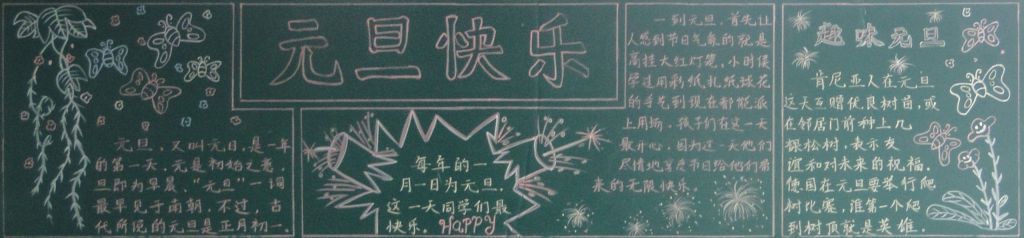 元旦快乐
元旦，又叫元日，是一年
的第一天，元是初始之意，
旦即为早晨。“元旦”一词
最早见于南朝，不过，古
代所说的元旦是正月初一。
每年的一
月一日为元旦，
这一天同学们最
快乐。HAPPY
一到元旦，首先让
人感到节日气象的就是
高挂大红灯笼，小时侯
学过用彩纸扎纸球花
的手艺到现在都能派
上用场，孩子们在这一天
最开心，因为这一天他们
尽情地享受节日给他们带
来的无限快乐。
趣味元旦
肯尼亚人在元旦
这天互赠优良树苗，或
在邻居门前种上几
棵松树，表示友
谊和对未来的祝福。
使国在元旦要举行爬
树比赛，谁第一个爬
到树顶就是英雄。